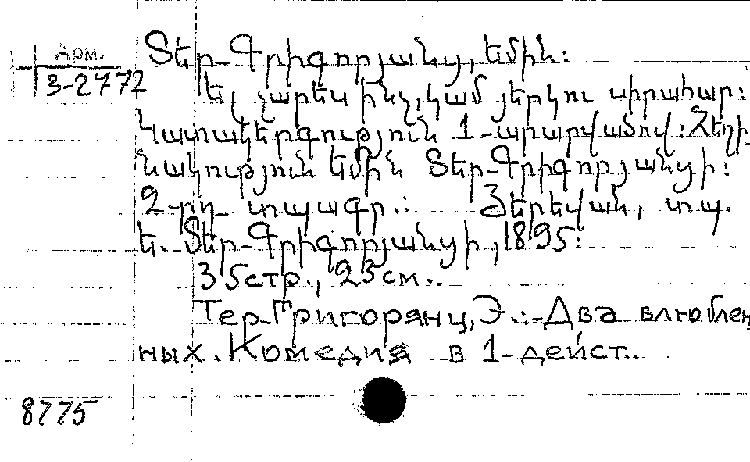 Арм.
3-2772
Տեր-Գրիգորյանց, Եմին:
Ել չարես ինչ, կամ յերկու սիրահար:
Կատակերգություն 1-արարվածով: Հեղի
նակություն Եմին Տեր-Գրիգորյանցի:
2-րդ տպագր.: Յերեվան, տպ.
Ե. Տեր-Գրիգորյանցի, 1895:
35 стр., 23 см..
Тер-Григорянц, Э.:-Два влюблен
ных. Комедия в 1-дейст..
8775